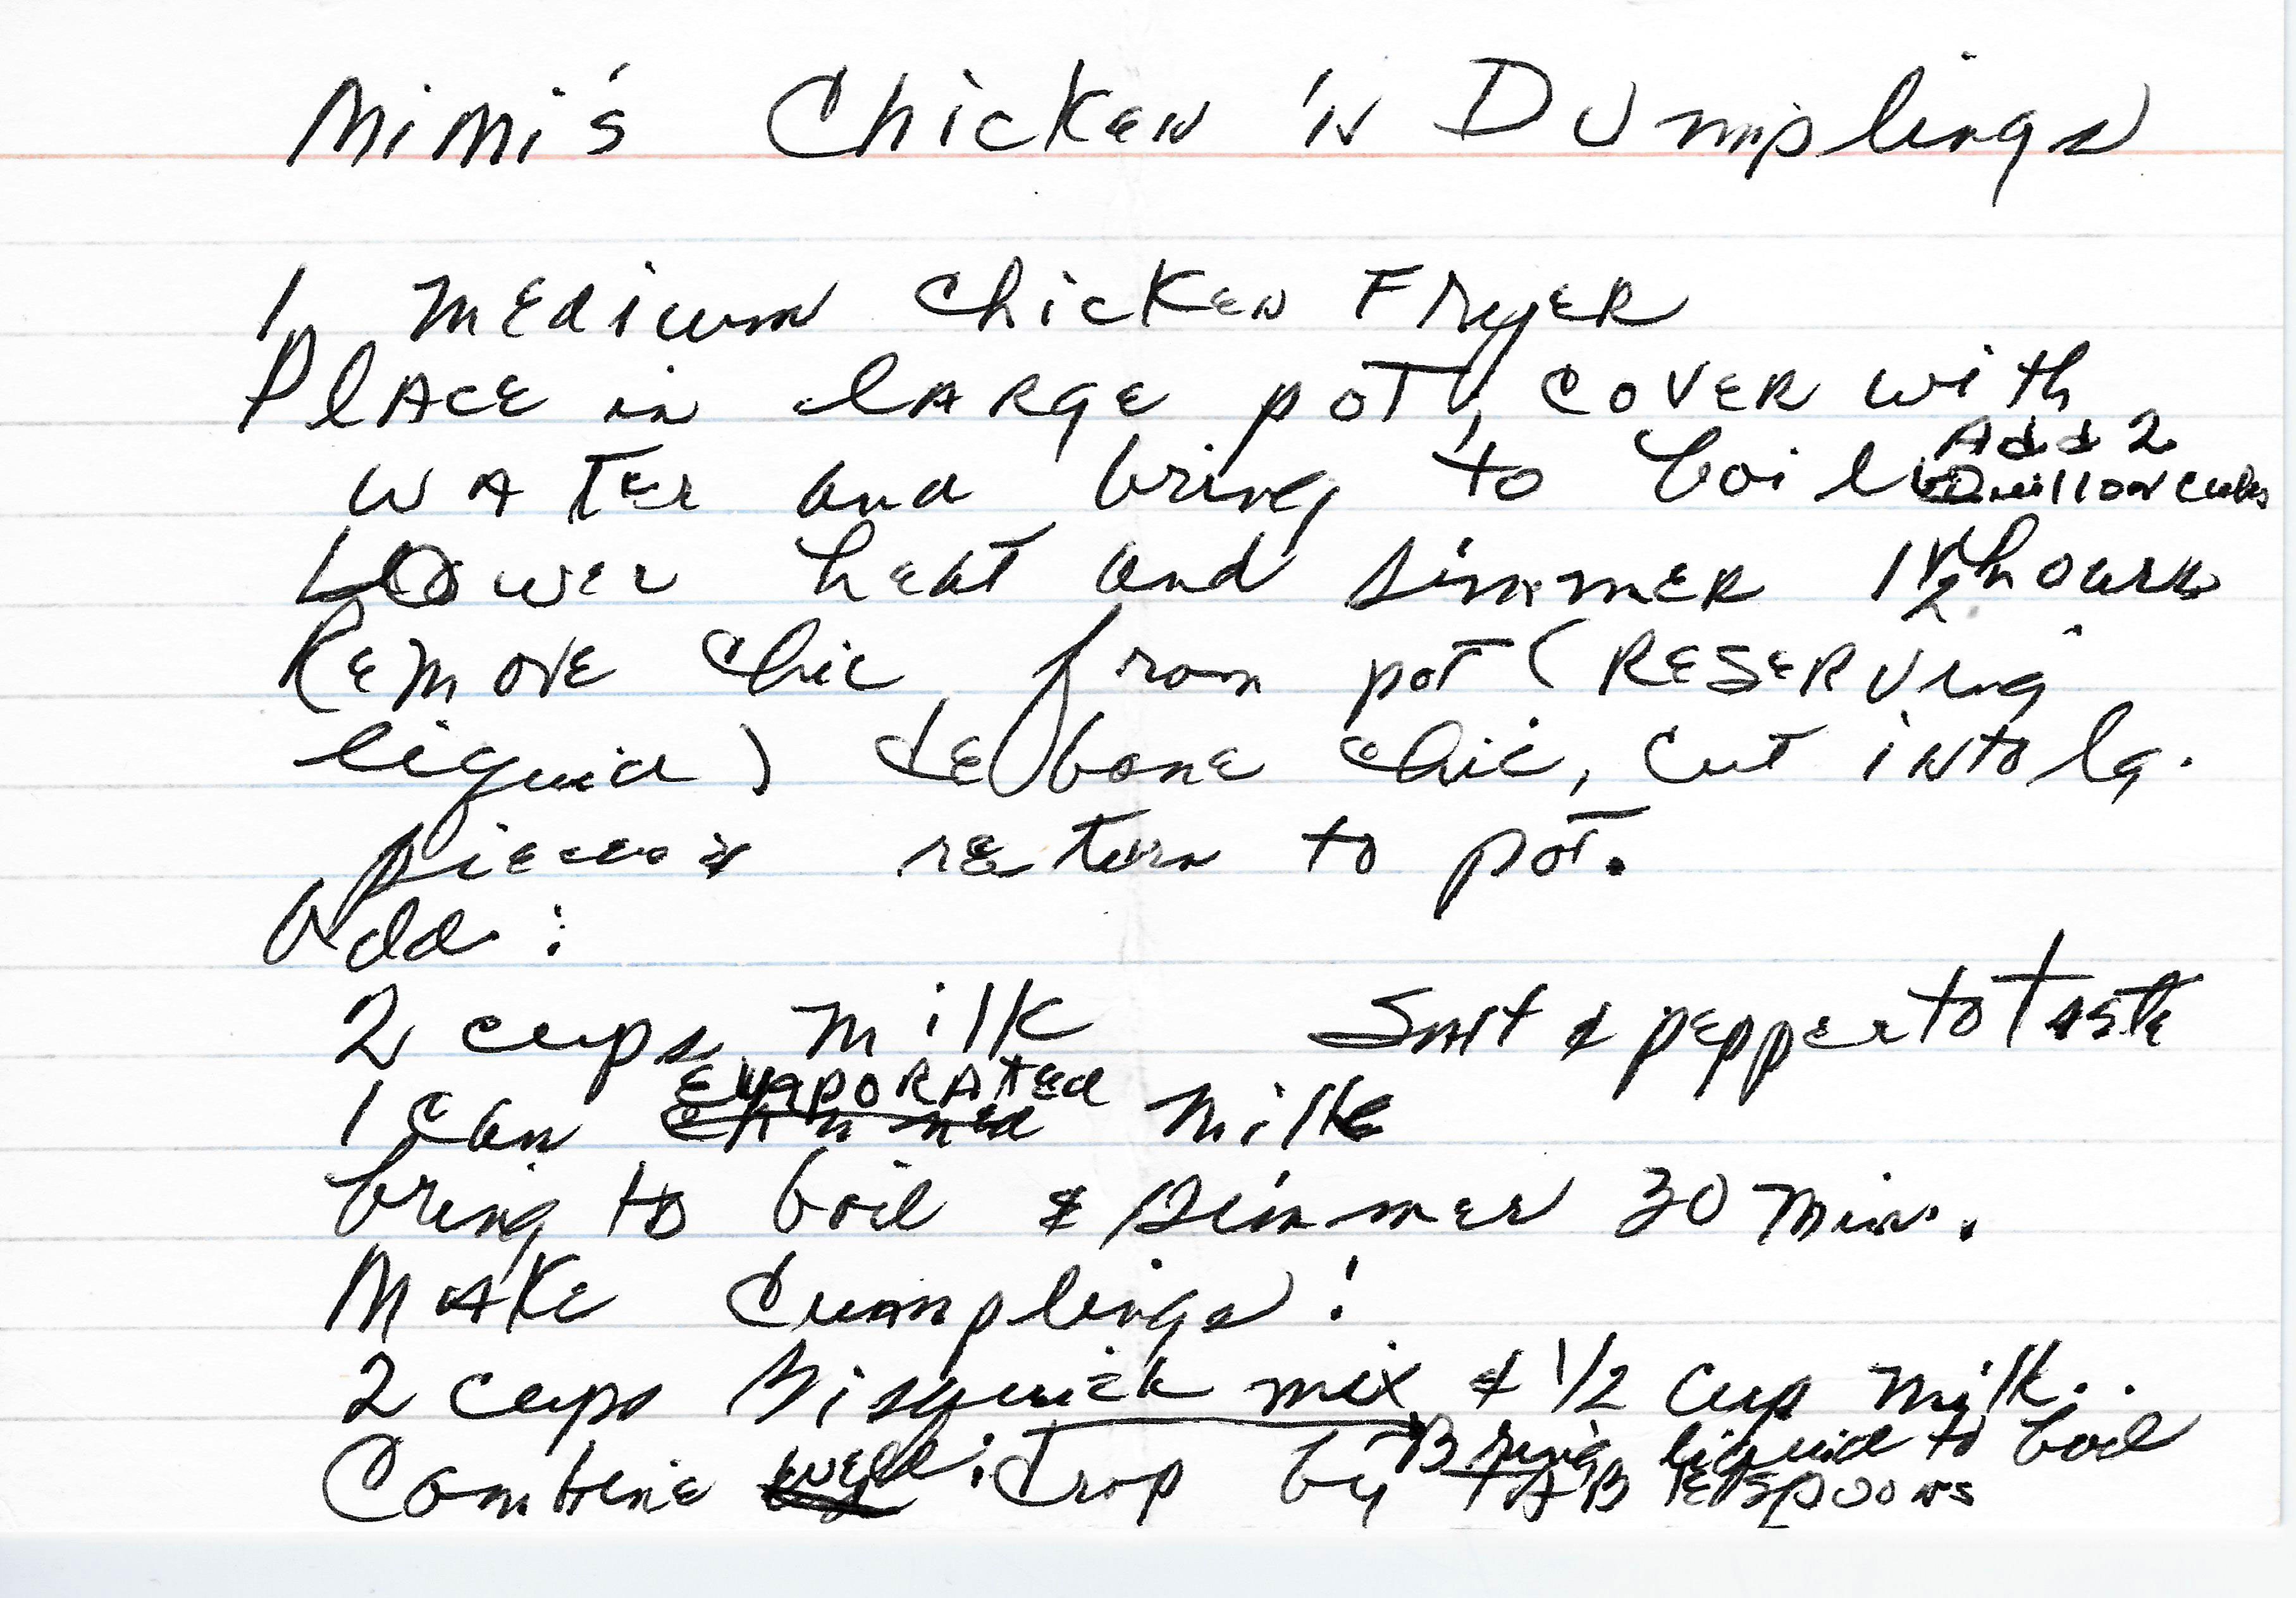 Mimi's Chicken 'N Dumplings
1 medium Chicken Fryer
Place in large pot, cover with
water and bring to boil Add 2
Bouillon cubes
Lower heat and simmer 1 1/2 hours
Remove chic from pot (Reserving
liquid) debone chic, cut into lg.
pieces & return to pot.
Add:
2 cups milk Salt & pepper to taste
1 can evaporated milk
bring to boil & simmer 30 min.
Make dumplings:
2 cups Bisquick mix & 1/2 cup milk..
Bring liquid to boil
Combine well: drop by Tablespoons